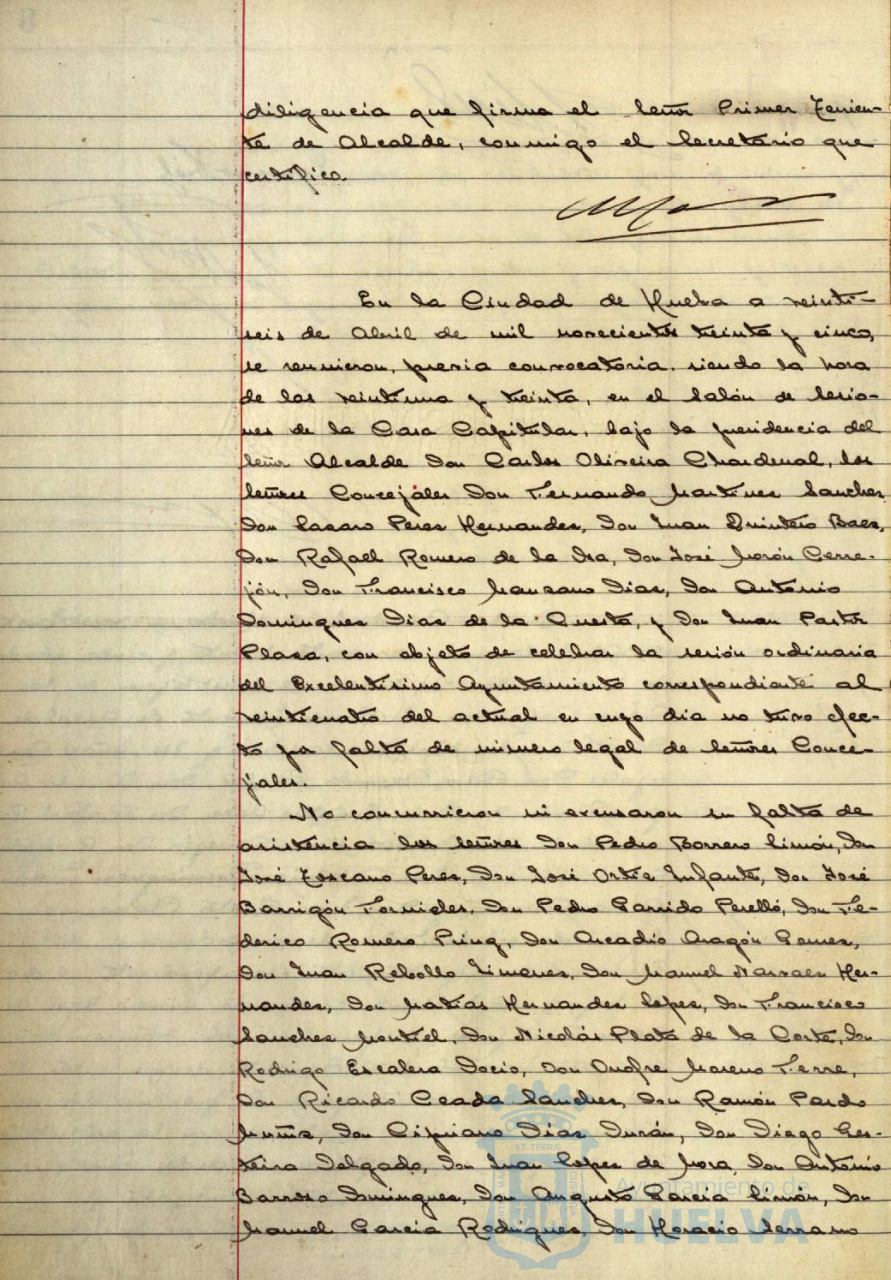 diligencia que firma el señor Primer Tenien-
te de Alcalde, conmigo el Secretario que
certifico.
En la Ciudad de Huelva a veinti-
seis de Abril de mil novecientos treinta y cinco,
se reunieron, previa convocatoria, siendo la hora
de las veintiuna y treinta, en el Salón de Sesio-
nes de la Casa Capitular, bajo la presidencia del
señor Alcalde Don Carlos Oliveira Chardenal, los
señores Concejales Don Fernando Martines Sanches,
Don Lasaro Peres Hernandes, Don Juan Quintero Baes,
Don Rafael Romero de la Osa, Don José Morón Cerre-
jón, Don Francisco Mansano Dias, Don Antonio
Domingues Dias de la Cuesta, y Don Juan Pastor
Plasa, con objeto de celebrar la sesión ordinaria
del Excelentísimo Ayuntamiento correspondiente al
veinticuatro del actual en cuyo dia no tuvo efec-
to por falta de número legal de señores Conce-
jales.
No concurrieron ni excusaron su falta de
asistencia los señores Don Pedro Borrero Limón, Don
José Toscano Peres, Don José Ortiz Infante, Don José
Barrigón Fornieles, Don Pedro Garrido Perelló, Don Fe-
derico Romero Prinq, Don Arcadio Aragón Gomes,
Don Juan Rebollo Jimenes, Don Manuel Narvaes Her-
nandes, Don Matias Hernandes Lopes, Don Francisco
Sanches Montiel, Don Nicolás Plata de la Corte, Don
Rodrigo Escalera Docio, Don Onofre Moreno Ferre,
Don Ricardo Ceada Sanches, Don Ramón Pardo
Muñis, Don Cipriano Dias Durán, Don Diego Ges-
teira Delgado, Don Juan Lopes de Mora, Don Antonio
Barroso Domingues, Don Augusto Garcia Limón, Don
Manuel Garcia Rodrigues, Don Horacio Serrano
Ayuntamiento de
HUELVA